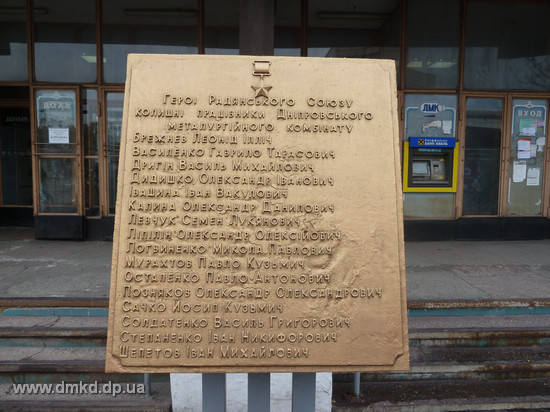 Герої Радянського Союзу
колишні працівники Дніпровського
металургійного комбінату
Брежнєв Леонід Ілліч
Василенко Гаврило Тарасович
Дригін Василь Михайлович
Дидишко Олександр Іванович
Івашина Іван Вакулович
Калина Олександр Данилович
Левчук Семен Лукянович
Ліпілін Олександр Олексійович
Логвиненко Микола Павлович
Мурахтов Павло Кузьмич
Остапенко Павло Антонович
Позняков Олександр Олександрович
Сачко Йосип Кузьмич
Солдатенко Василь Григорович
Степаненко Іван Никифорович
Шепетов Іван Михайлович
ВХОД
ДМК
ВХОД
www.dmkd.dp.ua